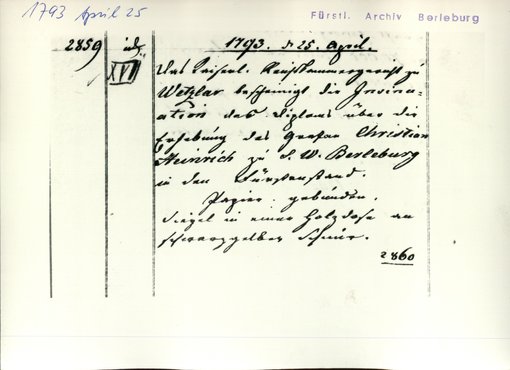 1793 April 25
Fürstl. Archiv Berleburg
2859
XVI
1793. d. 25. April.
Das Kaiserl. Reichskammergericht zu
Wetzlar bescheinigt die Insinu-
ation des Diploms über die
Erhebung des Grafen Christian
Heinrich zu S. W. Berleburg
in den Fürstenstand.
Papier: gebunden.
Siegel in einer Holzdose an
schwarzgelber Schnur.
2860